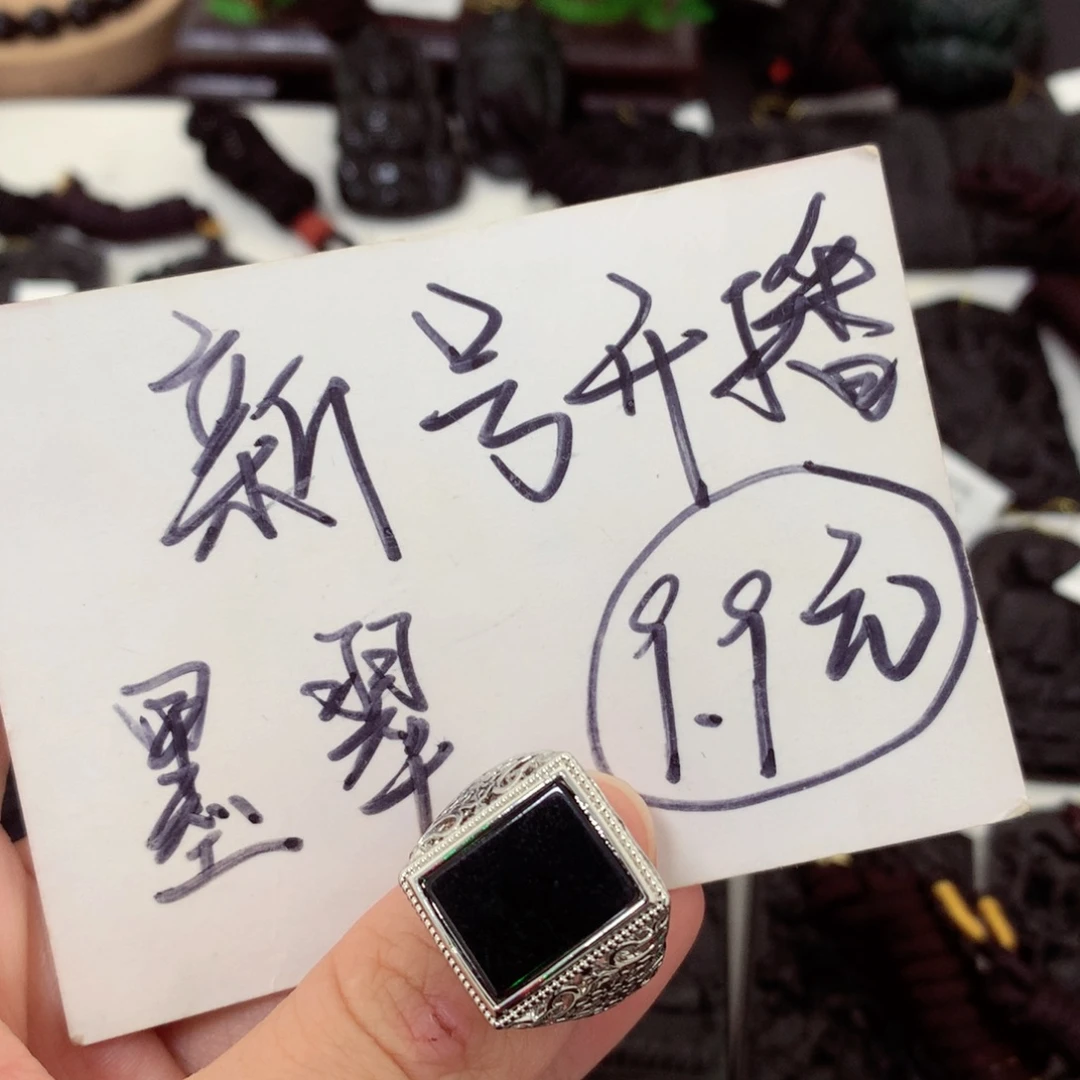 新号开播
墨翠 9.9元